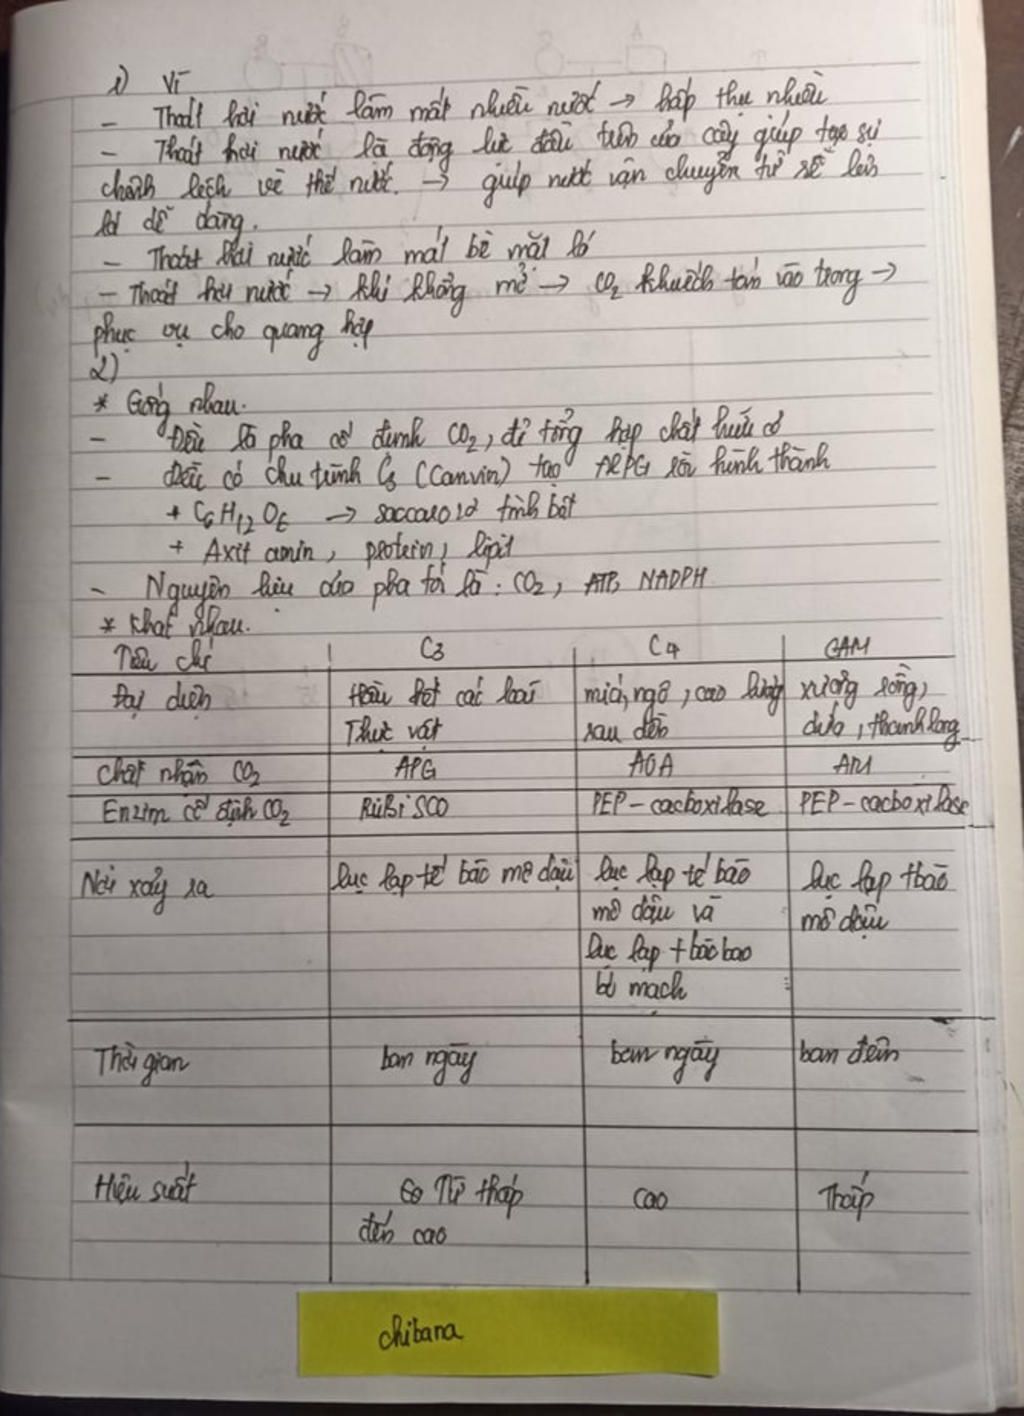 1) Vì
- Thoát hơi nước làm mất nhiều nước → hấp thụ nhiều
- Thoát hơi nước là động lực đầu trên của cây giúp tạo sự
chênh lệch về thế nước. → giúp nước vận chuyển từ rễ lên
lá dễ dàng.
- Thoát hơi nước làm mát bề mặt lá
- Thoát hơi nước → khí khổng mở → CO2 khuếch tán vào trong →
phục vụ cho quang hợp
2)
* Giống nhau.
- Đều là pha cố định CO2, để tổng hợp chất hữu cơ
- Đều có chu trình C3 (Canvin) tạo AlPG rồi hình thành
+ C6H12O6 → saccarozơ tinh bột
+ Axit amin, protein, lipit
- Nguyên liệu của pha tối là : CO2, ATP, NADPH
* Khác nhau.
Tiêu chí C3 C4 CAM
Đại diện Hầu hết các loài mía, ngô, cao lương xương rồng,
Thực vật rau dền dứa, thanh long
Chất nhận CO2 APG AOA AM
Enzim cố định CO2 RUBiSCO PEP - cacboxilase PEP - cacboxilase
Nơi xảy ra lục lạp tế bào mô dậu lục lạp tế bào lục lạp tbào
mô dậu và mô dậu
lục lạp tbào bao
bó mạch
Thời gian ban ngày ban ngày ban đêm
Hiệu suất Từ thấp cao Thấp
đến cao
chibana